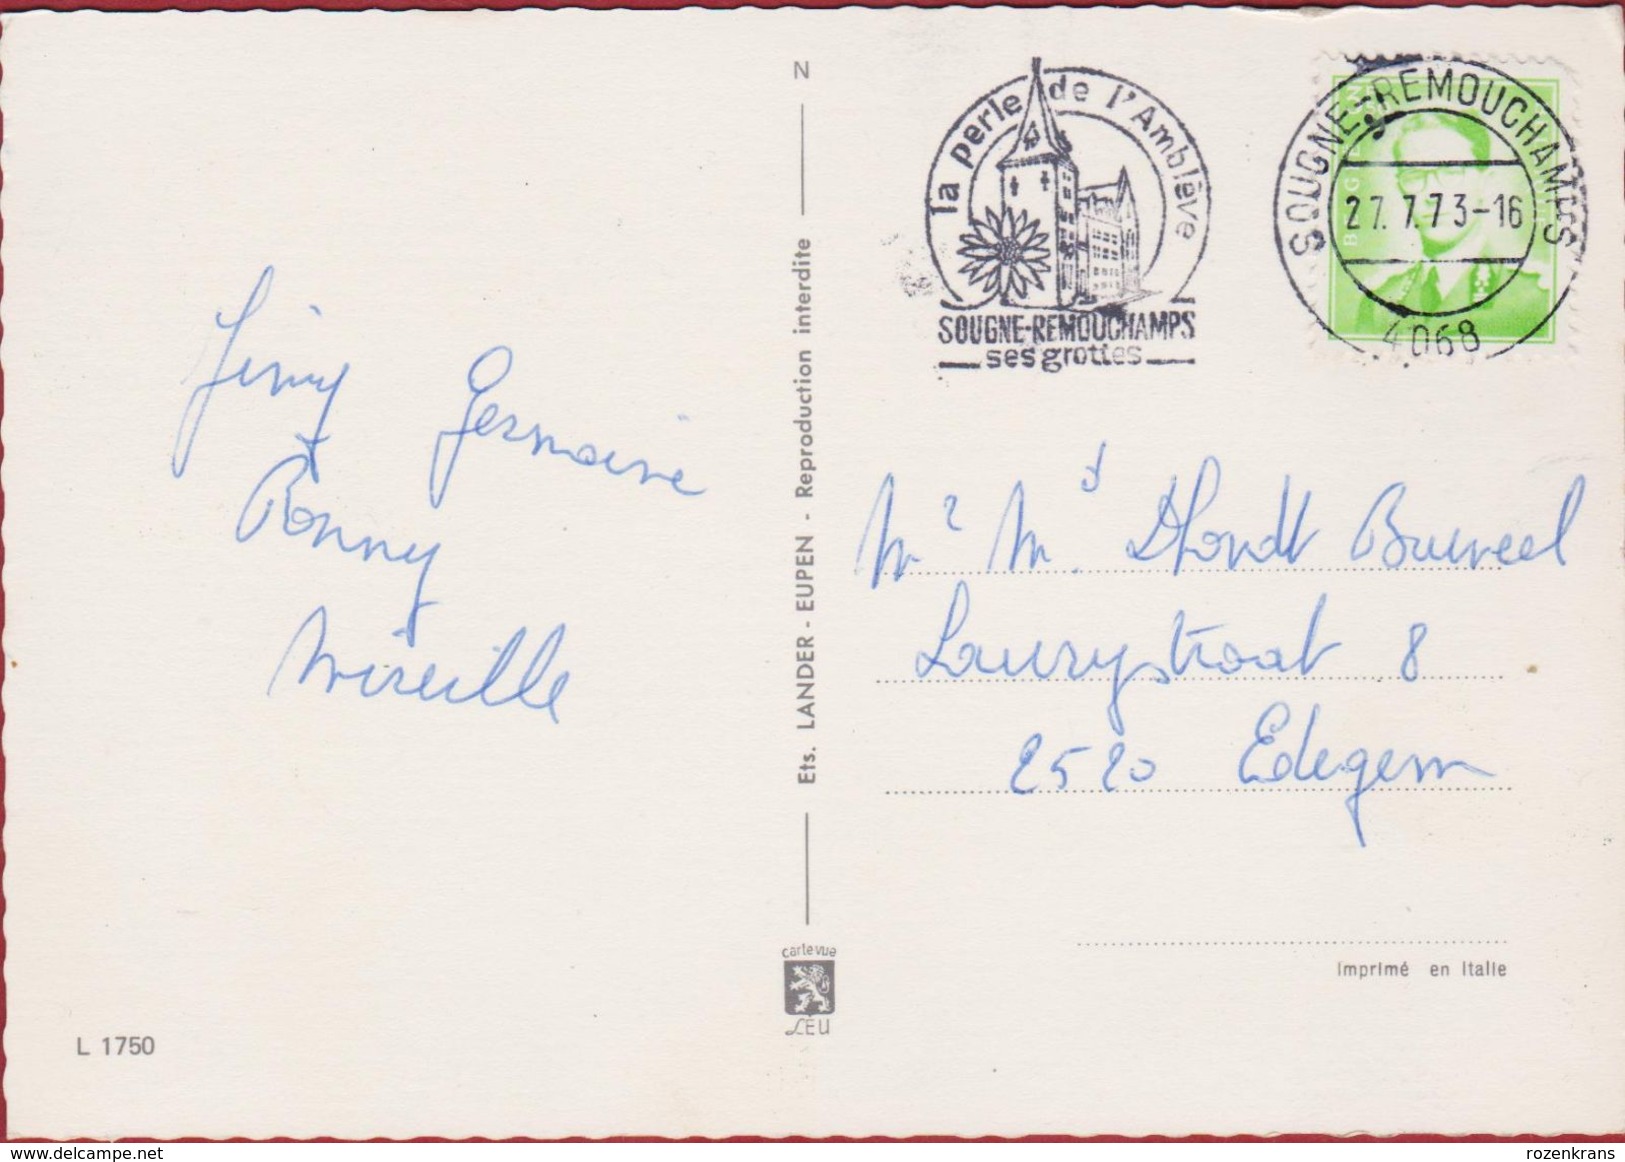 N
la perle de l'Amblève
SOUGNE-REMOUCHAMPS
ses grottes
SOUGNE-REMOUCHAMPS
27.7.73-16
4068
Jimy Germaine
Ronny
Mireille
Mr Md Dhondt
8
2520 Edegem
Ets. LANDER - EUPEN - Reproduction interdite
cartevue
LEU
Imprimé en Italie
L 1750
delcampe.net
rozenkrans